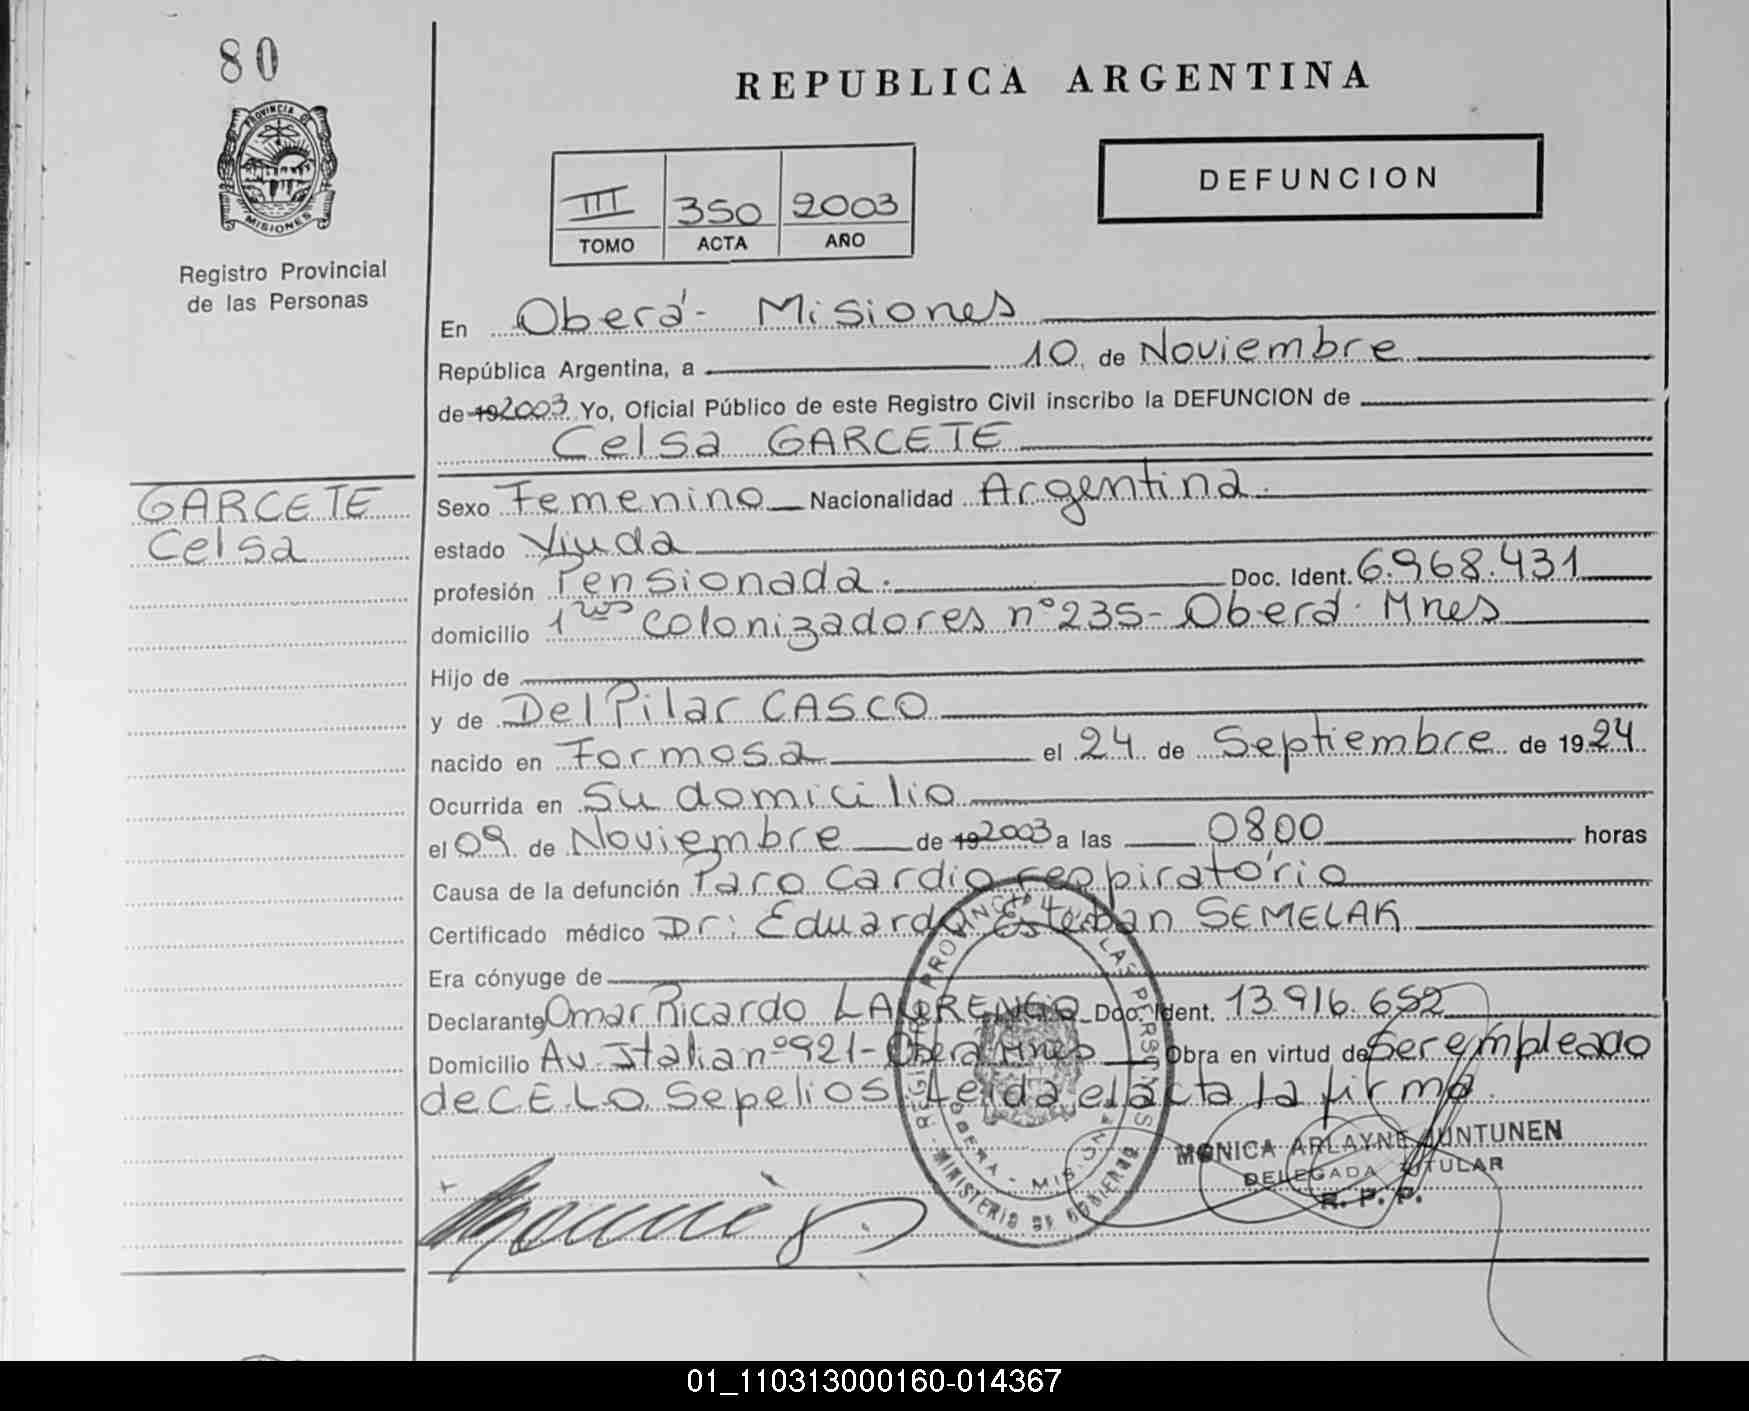 80
REPUBLICA ARGENTINA
PROVINCIA DE
MISIONES
Registro Provincial
de las Personas
III 350 2003
TOMO ACTA AÑO
DEFUNCION
En Oberá - Misiones
República Argentina, a 10 de Noviembre
de 19 2003 Yo, Oficial Público de este Registro Civil inscribo la DEFUNCION de
Celsa GARCETE
GARCETE
Celsa
Sexo Femenino Nacionalidad Argentina.
estado Viuda
profesión Pensionada. Doc. Ident. 6.968.431
domicilio 1ros Colonizadores nº 235 - Oberá. Mnes
Hijo de
y de Del Pilar CASCO
nacido en Formosa el 24 de Septiembre de 1924
Ocurrida en Su domicilio
el 09 de Noviembre de 19 2003 a las 0800 horas
Causa de la defunción Paro cardio respiratório
Certificado médico Dr: Eduardo Esteban SEMELAK
Era cónyuge de
Declarante Omar Ricardo LAURENCIO Doc. Ident. 13.916.652
Domicilio Av. Italia nº 921 - Oberá Mnes Obra en virtud de Ser empleado
de C.E.L.O. Sepelios. Leida el acta la firma.
REGISTRO PROVINCIAL DE LAS PERSONAS
OBERA - MISIONES
MINISTERIO DE GOBIERNO
MONICA ARLAYNE JUNTUNEN
DELEGADA TITULAR
R. P. P.
01_110313000160-014367